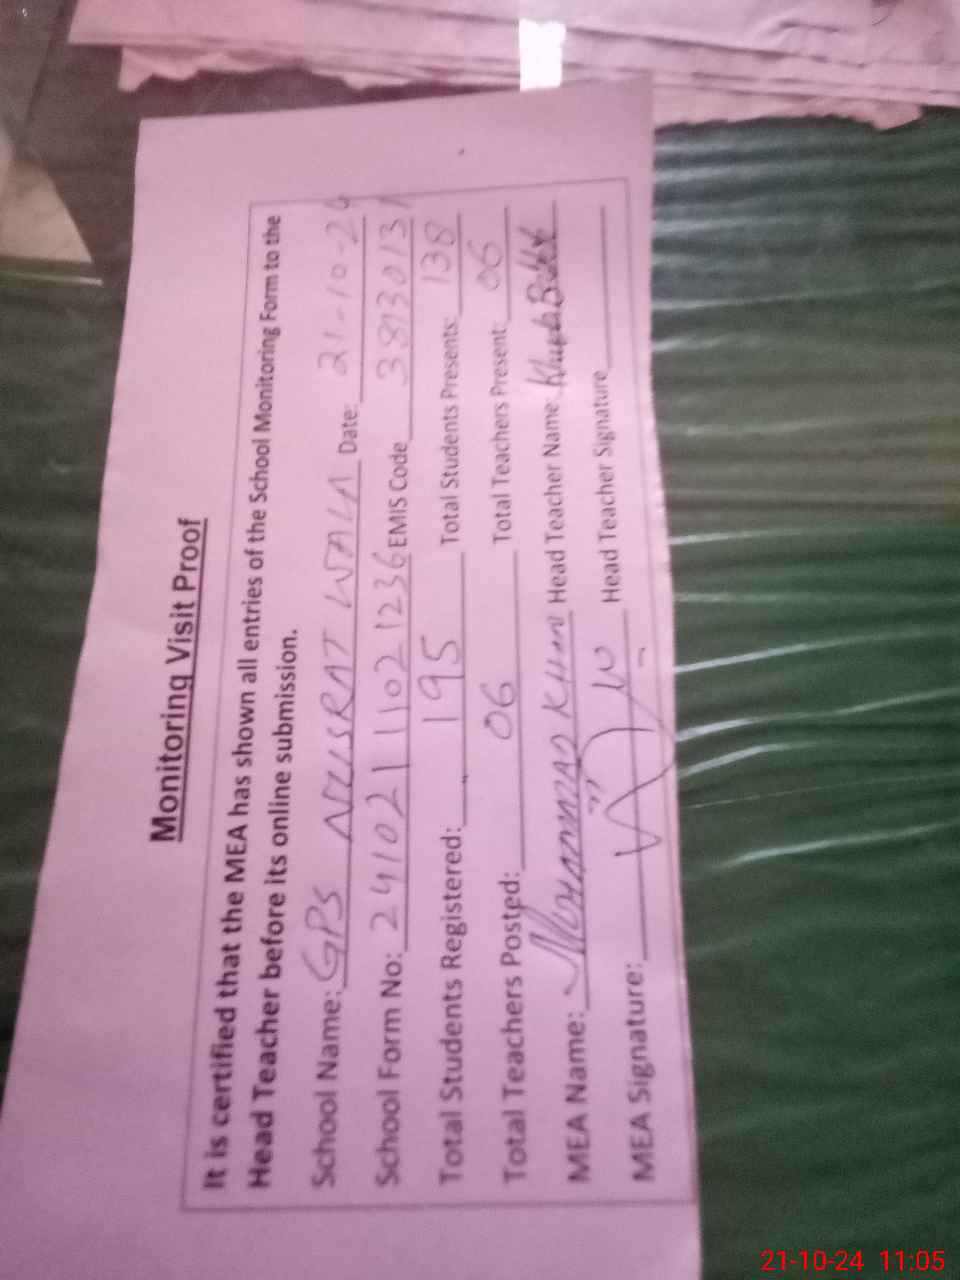 Monitoring Visit Proof
It is certified that the MEA has shown all entries of the School Monitoring Form to the
Head Teacher before its online submission.
School Name: GPS NUSRAT WALA Date: 21-10-24
School Form No: 2410211021236 EMIS Code 3813013
Total Students Registered: 195 Total Students Presents: 138
Total Teachers Posted: 06 Total Teachers Present: 06
MEA Name: Mohammad Khan Head Teacher Name:
MEA Signature: Head Teacher Signature
21-10-24 11:05